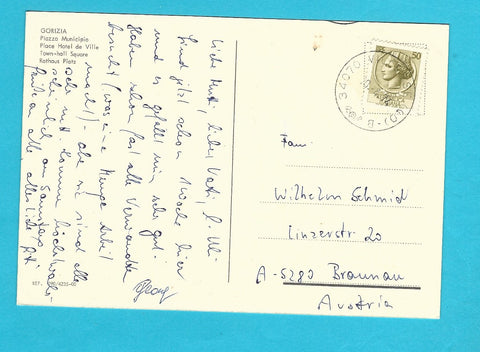 GORIZIA
Piazza Municipio
Place Hotel de Ville
Town-hall Square
Rathaus Platz
Liebe Mutti, lieber Vati, l. Uli
Sind jetzt schon 1 Woche hier
und es gefällt mir sehr gut.
Haben schon fast alle Verwandte
besucht (was eine Menge Arbeit
macht) - aber sie sind alle
sehr nett. Komme höchstwahr-
scheinlich am Samstag
Grüße an alle, alles Liebe
Georg
50
34070
Fam.
Wilhelm Schmid
Linzerstr. 20
A-5280 Braunau
Austria